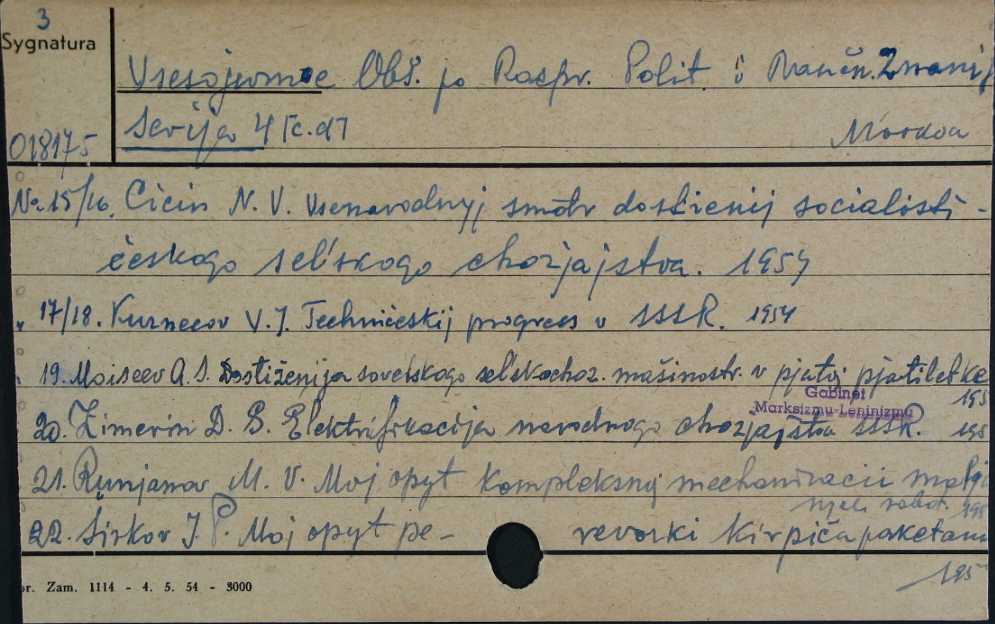 3
Sygnatura
Vsesojuznoe Obšč. po Raspr. Polit. i Naučn. Znanij
Serija 4 [c.d]
018175
Moskva
Nr 15/16. Cicin N. V. Vsenarodnyj smotr dostiženij socialisti-
českogo sel'skogo chozjajstva. 1954
" 17/18. Kuznecov V. I. Techničeskij progress v SSSR. 1954
" 19. Moiseev A. S. Dostiženija sovetskogo sel'skochoz. mašinostr. v pjatoj pjatiletke
195
Gabinet
Marksizmu-Leninizmu
20. Zimerin D. G. Elektrifikacija narodnogo chozjajstva SSSR. 195
21. Runjanov M. V. Moj opyt kompleksnoj mechanizacii
rabot. 195
22. Sirkov I. P. Moj opyt pe- revozki kirpiča paketami
195
or. Zam. 1114 - 4. 5. 54 - 3000